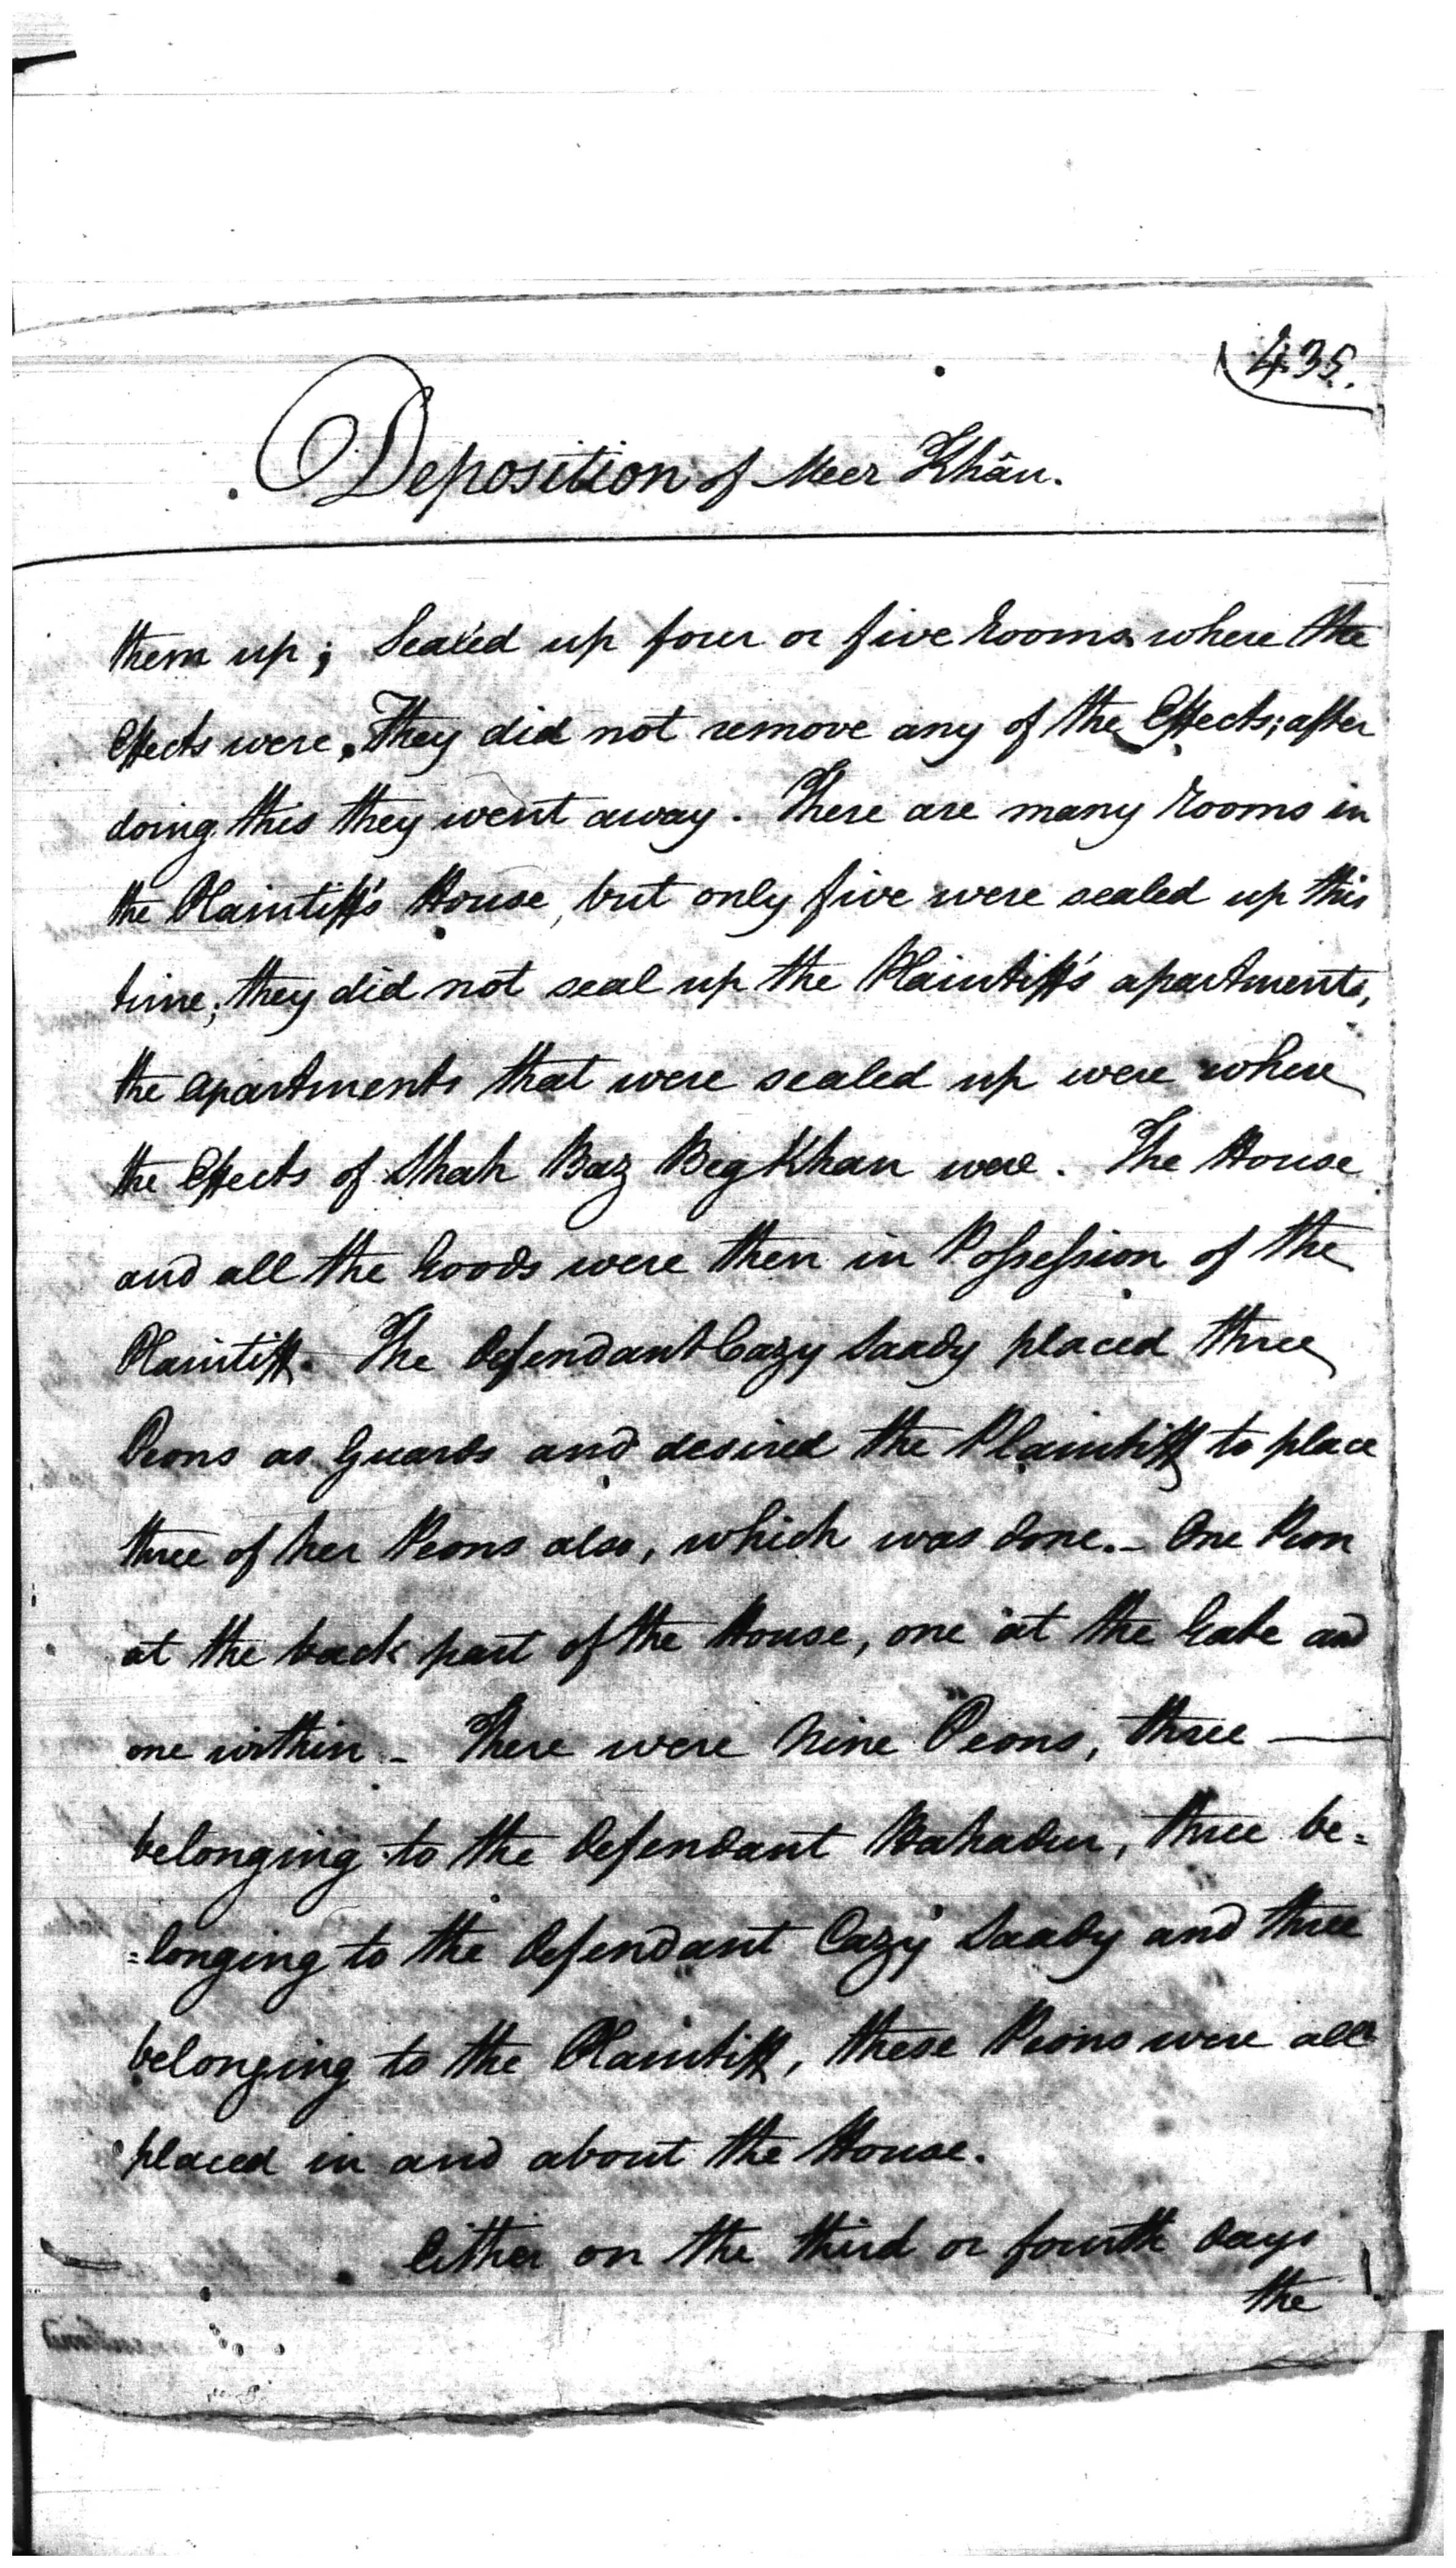 435.
Deposition of Meer Khân.
them up; Sealed up four or five Rooms where the
Effects were. They did not remove any of the Effects; after
doing this they went away. There are many Rooms in
the Plaintiff's House, but only five were sealed up this
time; they did not seal up the Plaintiff's apartments,
the apartments that were sealed up were where
the Effects of Shah Baz Beg Khan were. The House
and all the Goods were then in Possession of the
Plaintiff. The Defendant Cazy Saady placed three
Peons as Guards and desired the Plaintiff to place
three of her Peons also, which was done.- One Peon
at the back part of the House, one at the Gate and
one within - There were Nine Peons, three —
belonging to the Defendant Bahadur, three be=
=longing to the Defendant Cazy Saady and three
belonging to the Plaintiff, these Peons were all
placed in and about the House.
Either on the third or fourth Days
the